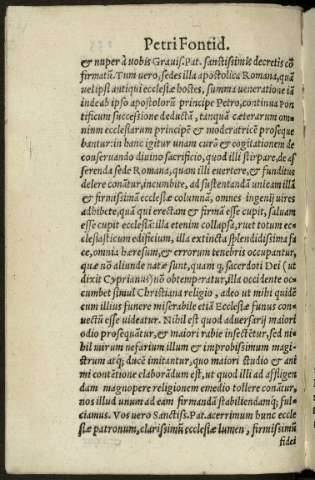 Petri Fontid.
& nuper à vobis Grauiss. Pat. sanctissimis decretis cō
firmatū. Tum vero, sedes illa apostolica Romana, quā
vel ipsi antiqui ecclesiæ hostes, summa veneratione iā
inde ab ipso apostolorū principe Petro, continua Pon
tificum successione deductā, tanquā cæterarum om-
nium ecclesiarum principē & moderatricē proseque
bantur: in hanc igitur unam curā & cogitationem de
conseruando diuino sacrificio, quod illi stirpare, de as
serenda sede Romana, quam illi euertere, & funditus
delere conātur, incumbite, ad sustentandā unicam illā
& firmissimā ecclesiæ columnā, omnes ingenij uires
adhibete, quā qui erectam & firmā esse cupit, saluam
esse cupit ecclesiā: illa etenim collapsa, ruet totum ec
clesiasticum edificium, illa extincta splendidissima fa
ce, omnia hæresum, & errorum tenebris occupantur,
quæ nō aliunde natæ sunt, quam q̃ sacerdoti Dei (ut
dixit Cyprianus) nō obtemperatur, illa occidente oc
cumbet simul Christiana religio, adeo ut mihi quidē
cum illius funere miserabile etiā Ecclesiæ funus con
uectū esse uideatur. Nihil est quod aduersarij maiori
odio prosequātur, & maiori rabie insectētur, sed ni-
hil mirum nefarium illum & improbissimam magi
strum atq; ducē imitantur, quo maiori studio & ani
mi contētione elaborādum est, ut quod illi ad affligen
dam magnopere religionem e medio tollere conātur,
nos illud unum ad eam firmandā stabiliendamq; ful-
ciamus. Vos uero Sanctiss. Pat. acerrimum hunc eccle
siæ patronum, clarissimū ecclesiæ lumen, firmissimū
fidei